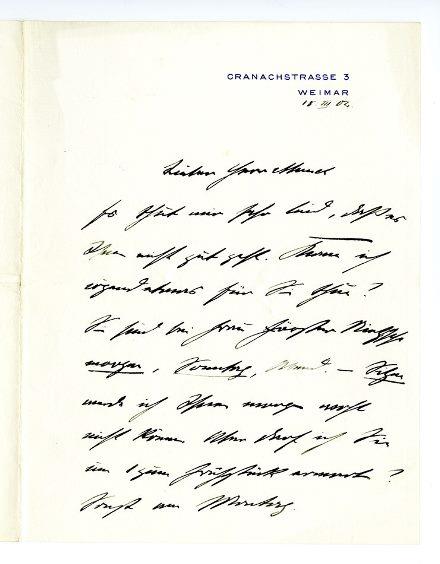 CRANACHSTRASSE 3
WEIMAR
18 III 04.
Lieber Herr Munch
Es thut mir sehr leid, daß es
Ihnen nicht gut geht. Kann ich
irgend etwas für Sie thun?
Sie sind bei Frau Förster Nietzsche
morgen, Sonntag, Abend. –
werde ich Ihnen morgen
nicht können Aber darf ich Sie
um 1 zum Frühstück erwarten?
Sonst am Montag.